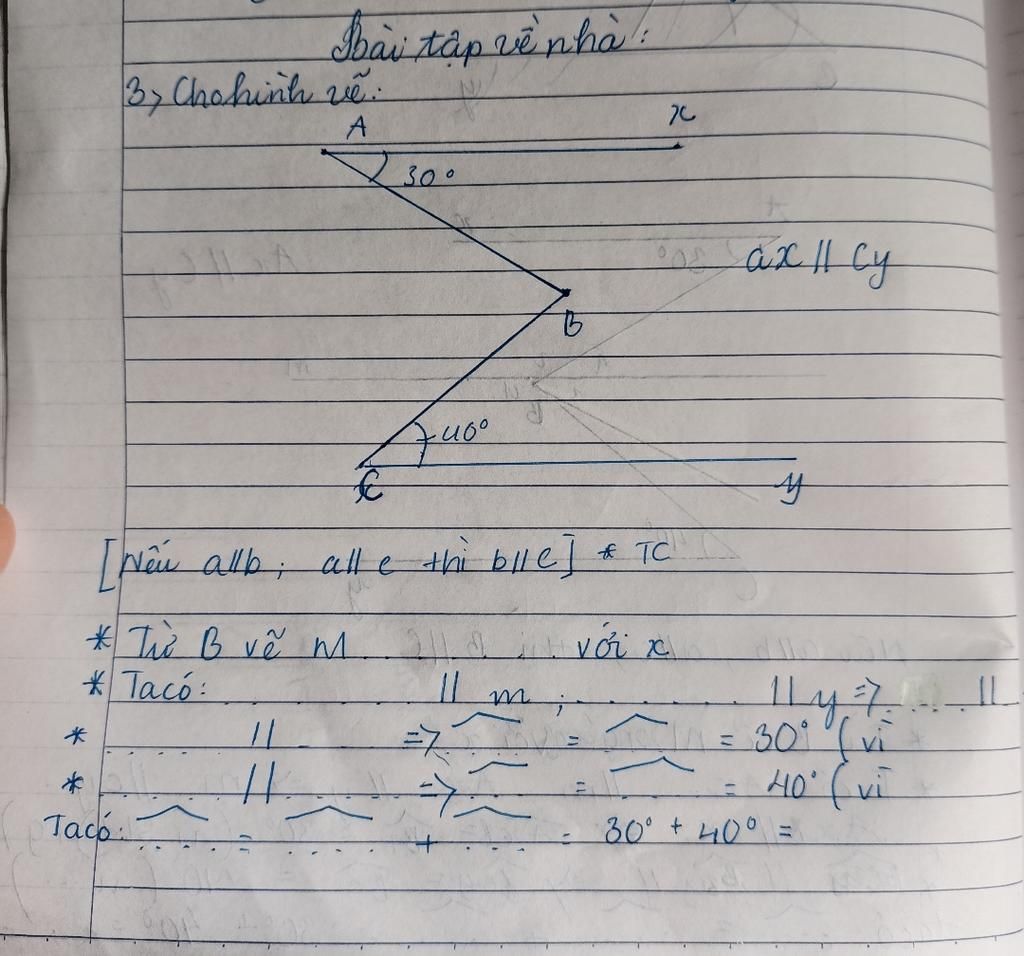 Bài tập về nhà:
3, Cho hình vẽ:
A x
30°
ax // Cy
B
40°
C y
[Nếu a//b; a//c thì b//c] * TC
* Từ B vẽ m ........ với x
* Ta có: ........ // m; ........ // y => ..... //
* ........ // ........ => ..... = ..... = 30° (vì
* ........ // ........ => ..... = ..... = 40° (vì
Ta có: ..... = ..... + ..... = 30° + 40° =